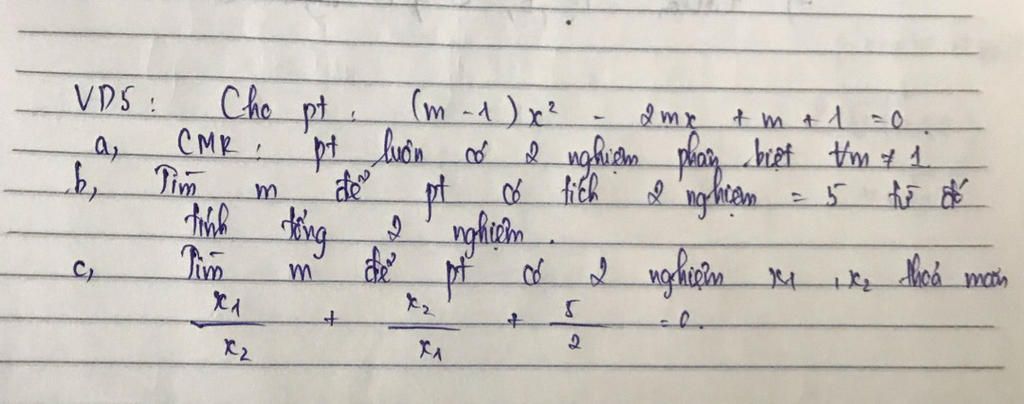 VD5: Cho pt: (m - 1)x² - 2mx + m + 1 = 0.
a, CMR: pt luôn có 2 nghiệm phân biệt ∀m ≠ 1
b, Tìm m để pt có tích 2 nghiệm = 5 từ đó
tính tổng 2 nghiệm.
c, Tìm m để pt có 2 nghiệm x1, x2 thoả mãn
x1/x2 + x2/x1 + 5/2 = 0.